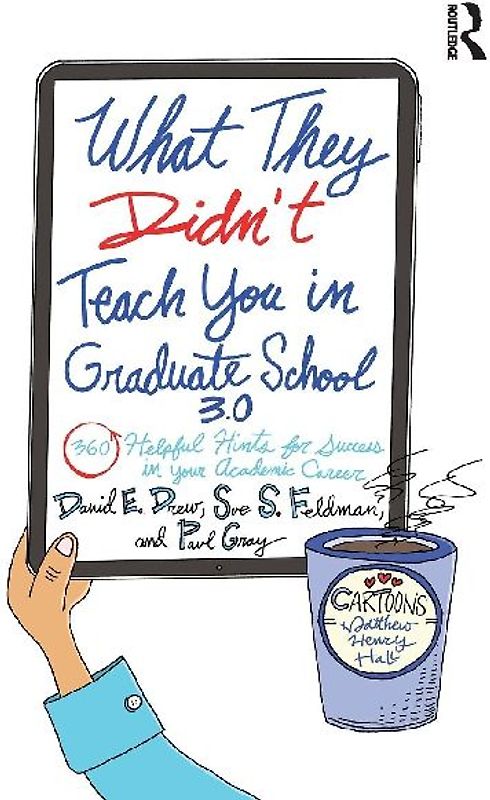 ROUTLEDGE
What They
Didn't
Teach You in
Graduate School
3.0
360 Helpful Hints for Success
in your Academic Career
David E. Drew, Sue S. Feldman,
and Paul Gray
CARTOONS
Matthew
Henry
Hall